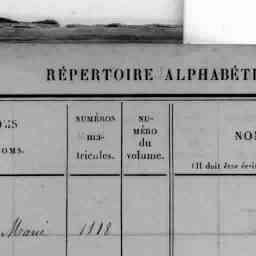 RÉPERTOIRE ALPHABÉTI
OMS
NUMÉROS
ma-
tricules.
NU-
MÉRO
du
volume.
NO
OMS.
(Il doit être écri
Marié 1118